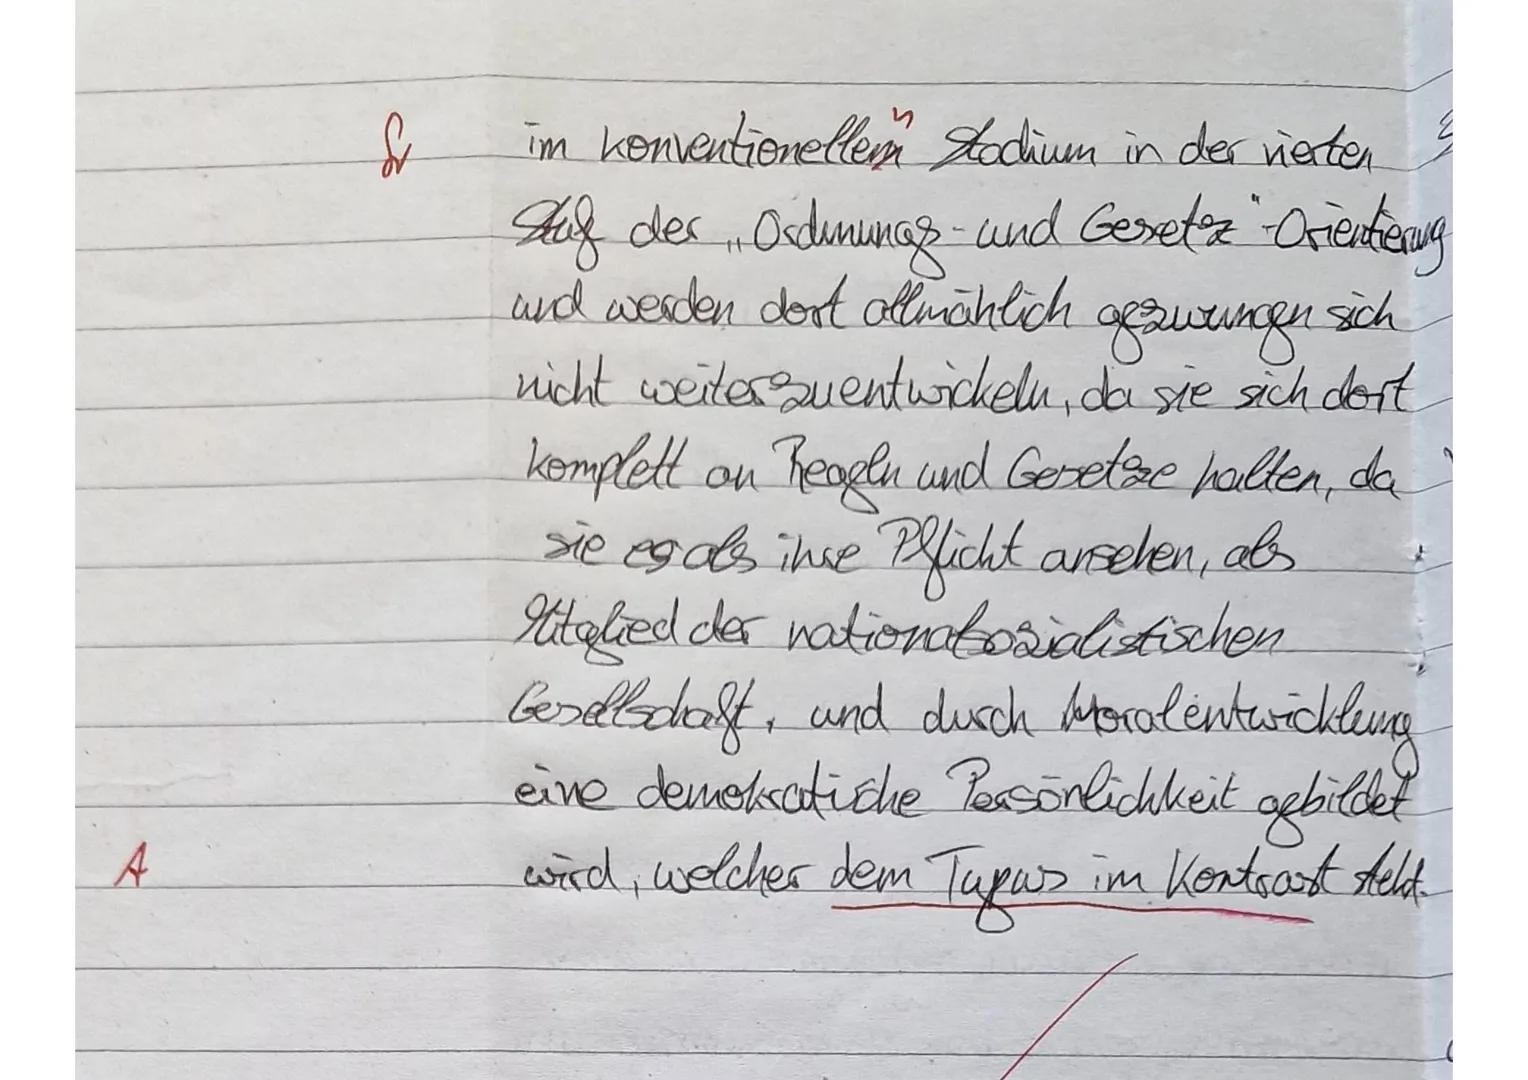 Gr im konventionellem n Stadium in der vierten
Stuf der „Ordnungs- und Gesetz"-Orientierung
und werden dort allmählich gezwungen sich
nicht weiterzuentwickeln, da sie sich dort
komplett an Regeln und Gesetze halten, da
sie es als ihre Pflicht ansehen, als
Mitglied der nationalsozialistischen
Gesellschaft, und durch Moralentwicklung
eine demokratische Persönlichkeit gebildet
A wird, welcher dem Typus im Kontrast steht.